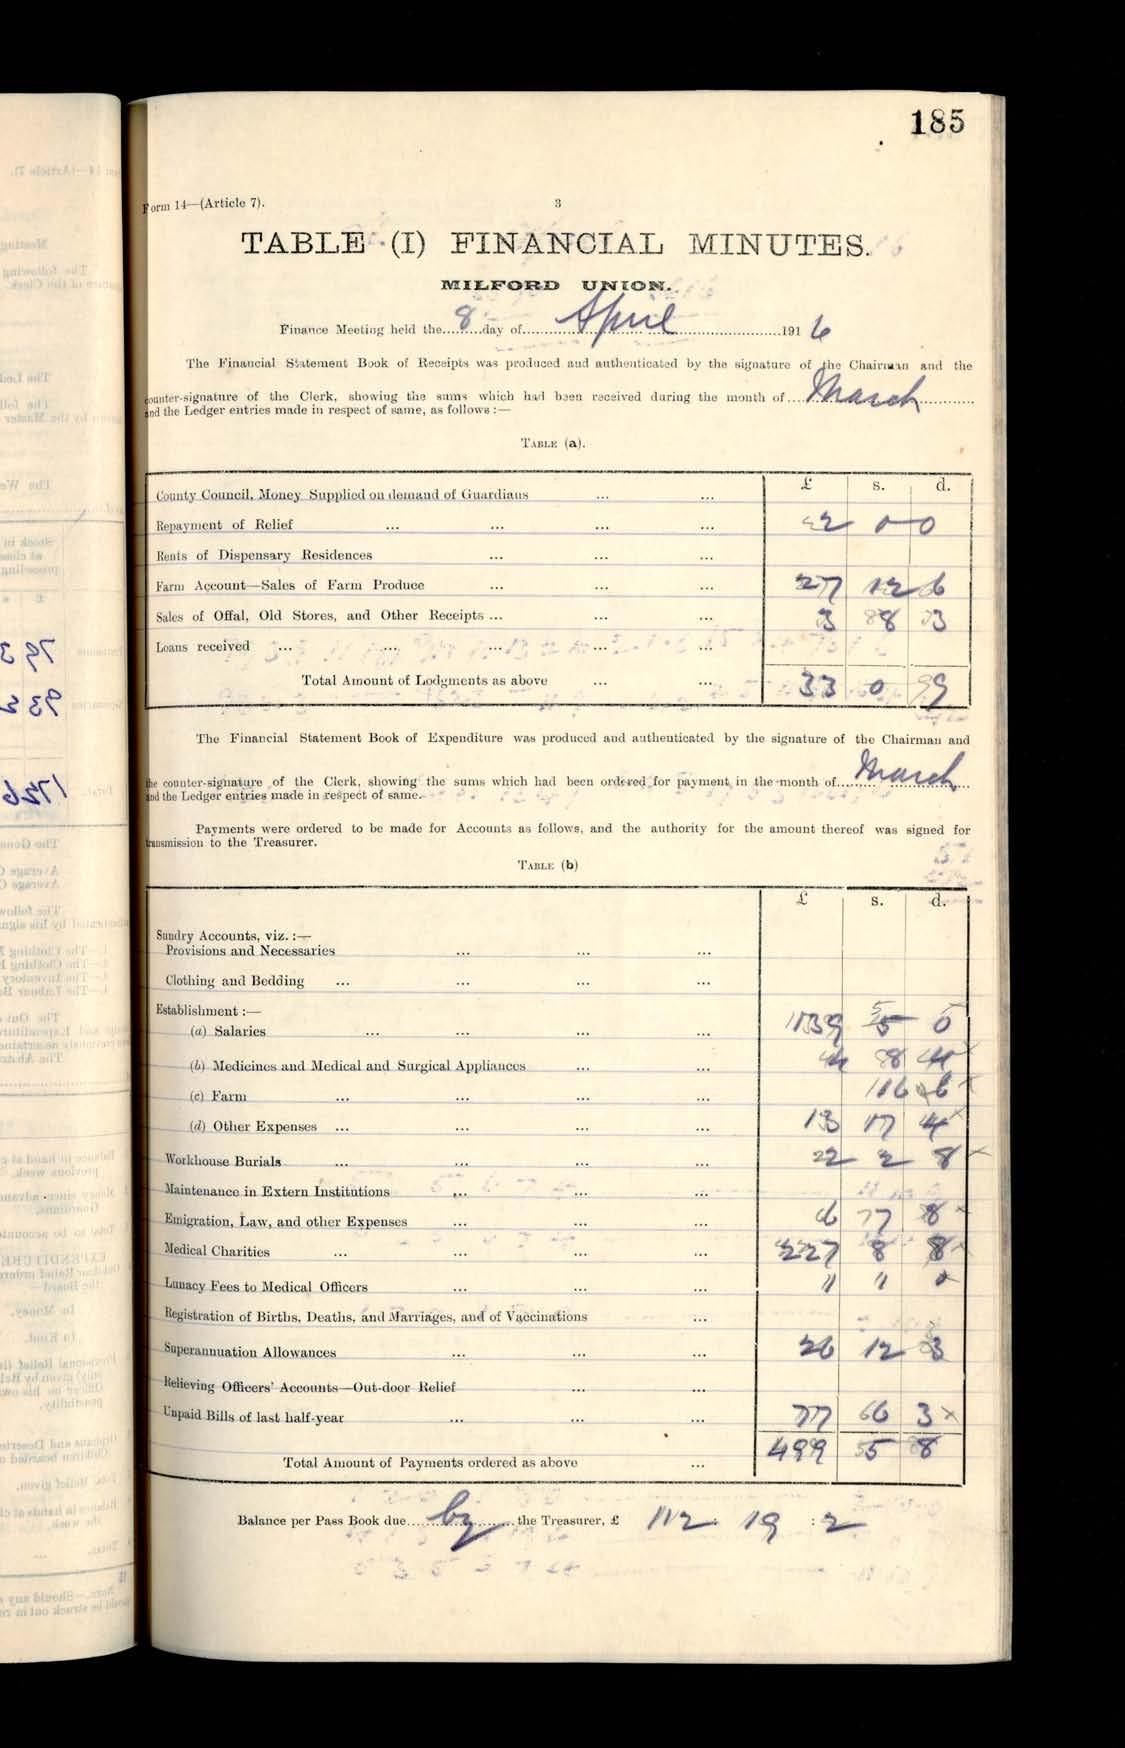 185
Form 14—(Article 7).
3
TABLE (I) FINANCIAL MINUTES.
MILFORD UNION.
Finance Meeting held the 8 day of April 1916
The Financial Statement Book of Receipts was produced and authenticated by the signature of the Chairman and the
counter-signature of the Clerk, showing the sums which had been received during the month of March
and the Ledger entries made in respect of same, as follows :—
TABLE (a).
£ s. d.
County Council, Money Supplied on demand of Guardians ... ...
Repayment of Relief ... ... ... ... 2 0 0
Rents of Dispensary Residences ... ... ...
Farm Account—Sales of Farm Produce ... ... ... 27 12 6
Sales of Offal, Old Stores, and Other Receipts ... ... ... 3 8 3
Loans received ... ... ... ... ...
Total Amount of Lodgments as above ... ... 33 0 9
The Financial Statement Book of Expenditure was produced and authenticated by the signature of the Chairman and
the counter-signature of the Clerk, showing the sums which had been ordered for payment in the month of March
and the Ledger entries made in respect of same.
Payments were ordered to be made for Accounts as follows, and the authority for the amount thereof was signed for
transmission to the Treasurer.
TABLE (b)
£ s. d.
Sundry Accounts, viz. :—
Provisions and Necessaries ... ... ...
Clothing and Bedding ... ... ... ...
Establishment :—
(a) Salaries ... ... ... ... 139 5 0
(b) Medicines and Medical and Surgical Appliances ... ... 4 8 4
(c) Farm ... ... ... ... 16 6
(d) Other Expenses ... ... ... ... 13 17 4
Workhouse Burials ... ... ... ... 2 2 8
Maintenance in Extern Institutions ... ... ...
Emigration, Law, and other Expenses ... ... ... 6 7 8
Medical Charities ... ... ... ... 227 8 8
Lunacy Fees to Medical Officers ... ... ... " "
Registration of Births, Deaths, and Marriages, and of Vaccinations ...
Superannuation Allowances ... ... ... 26 12 3
Relieving Officers' Accounts—Out-door Relief ... ...
Unpaid Bills of last half-year ... ... ... 77 6 3
Total Amount of Payments ordered as above ... 499 5 8
Balance per Pass Book due by the Treasurer, £ 112 : 19 : 2